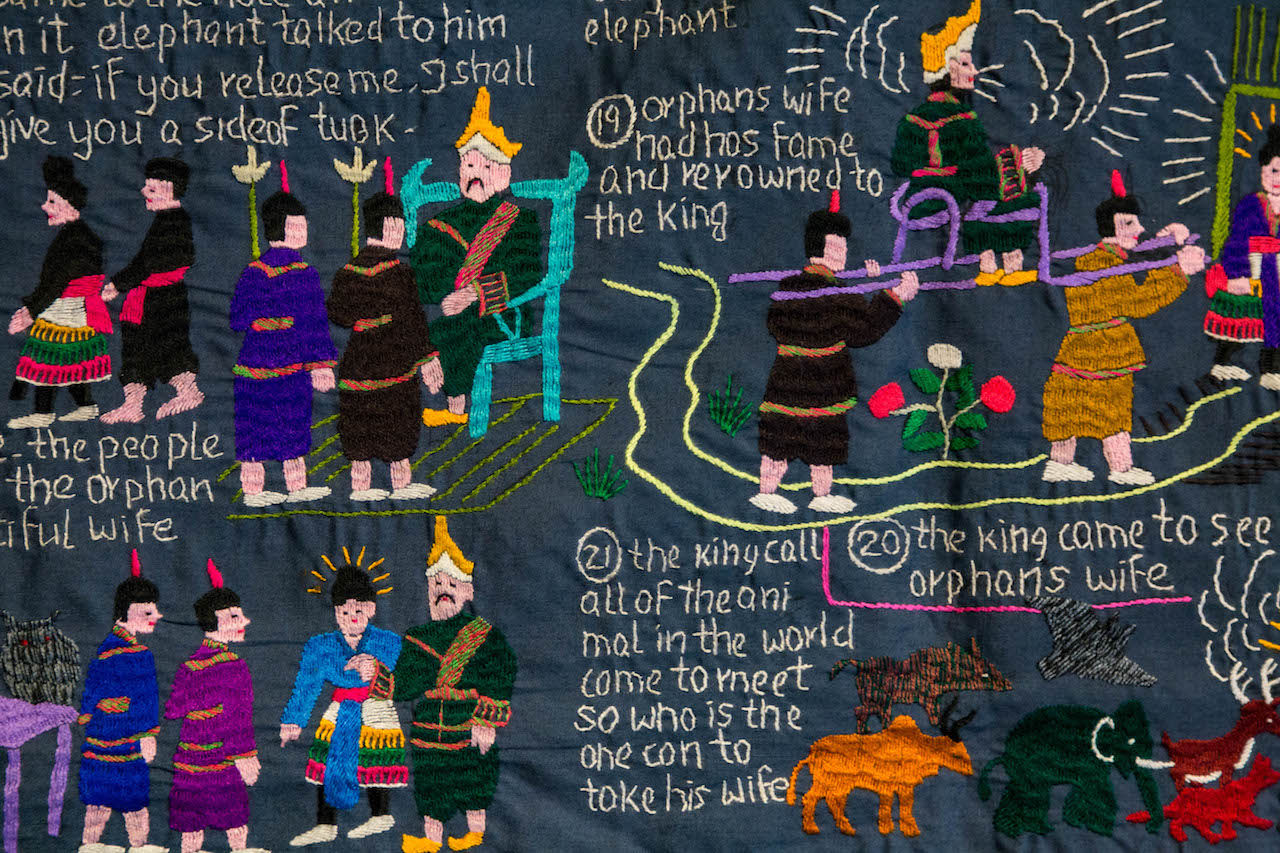 to the hole
it elephant talked to him
said= if you release me. I shall
give you a sideof tusk-
elephant
⑲ orphans wife
had has fame
and rerowned to
the king
the people
the orphan
wife
⑳ the king came to see
orphans wife
㉑ the king call
all of the ani
mal in the world
come to meet
so who is the
one con to
take his wife